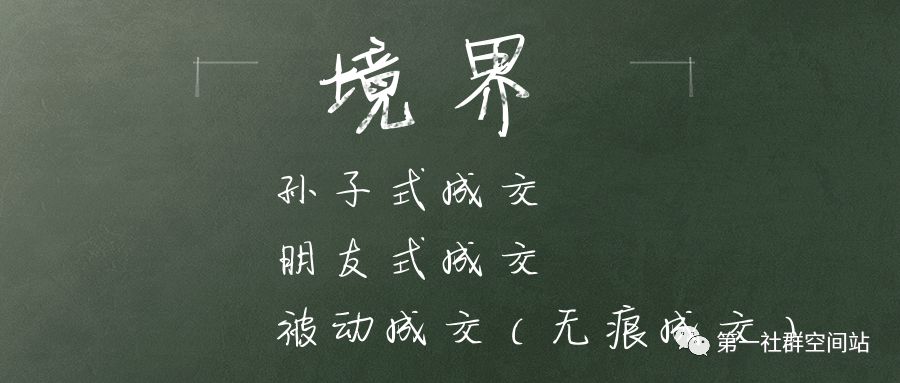 境界
孙子式成交
朋友式成交
被动成交(无痕成交)
第一社群空间站